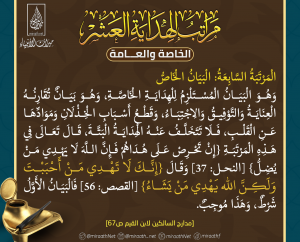 مراتب الهداية العشر
الخاصة والعــامة
ميراث الأنبياء
المَرْتَبَةُ السَّابِعَةُ: البَيَانُ الخَاصُّ
وَهُوَ الْبَيَانُ الْمُسْتَلْزِمُ لِلْهِدَايَةِ الْخَاصَّةِ، وَهُوَ بَيَانٌ تُقَارِنُهُ
الْعِنَايَةُ وَالتَّوْفِيقُ وَالِاجْتِبَاءُ، وَقَطْعُ أَسْبَابِ الْخِذْلَانِ وَمَوَادِّهَا
عَنِ الْقَلْبِ، فَلَا تَتَخَلَّفُ عَنْهُ الْهِدَايَةُ الْبَتَّةَ، قَالَ تَعَالَى فِي
هَذِهِ الْمَرْتَبَةِ {إِنْ تَحْرِصْ عَلَى هُدَاهُمْ فَإِنَّ اللَّهَ لَا يَهْدِي مَنْ
يُضِلُّ} [النحل: 37] وَقَالَ {إِنَّكَ لَا تَهْدِي مَنْ أَحْبَبْتَ
وَلَكِنَّ اللَّهَ يَهْدِي مَنْ يَشَاءُ} [القصص: 56] فَالْبَيَانُ الْأَوَّلُ
شَرْطٌ، وَهَذَا مُوجِبٌ.
[مدارج السالكين لابن القيم ص67]
@miraathNet
miraath.net
@miraathNet